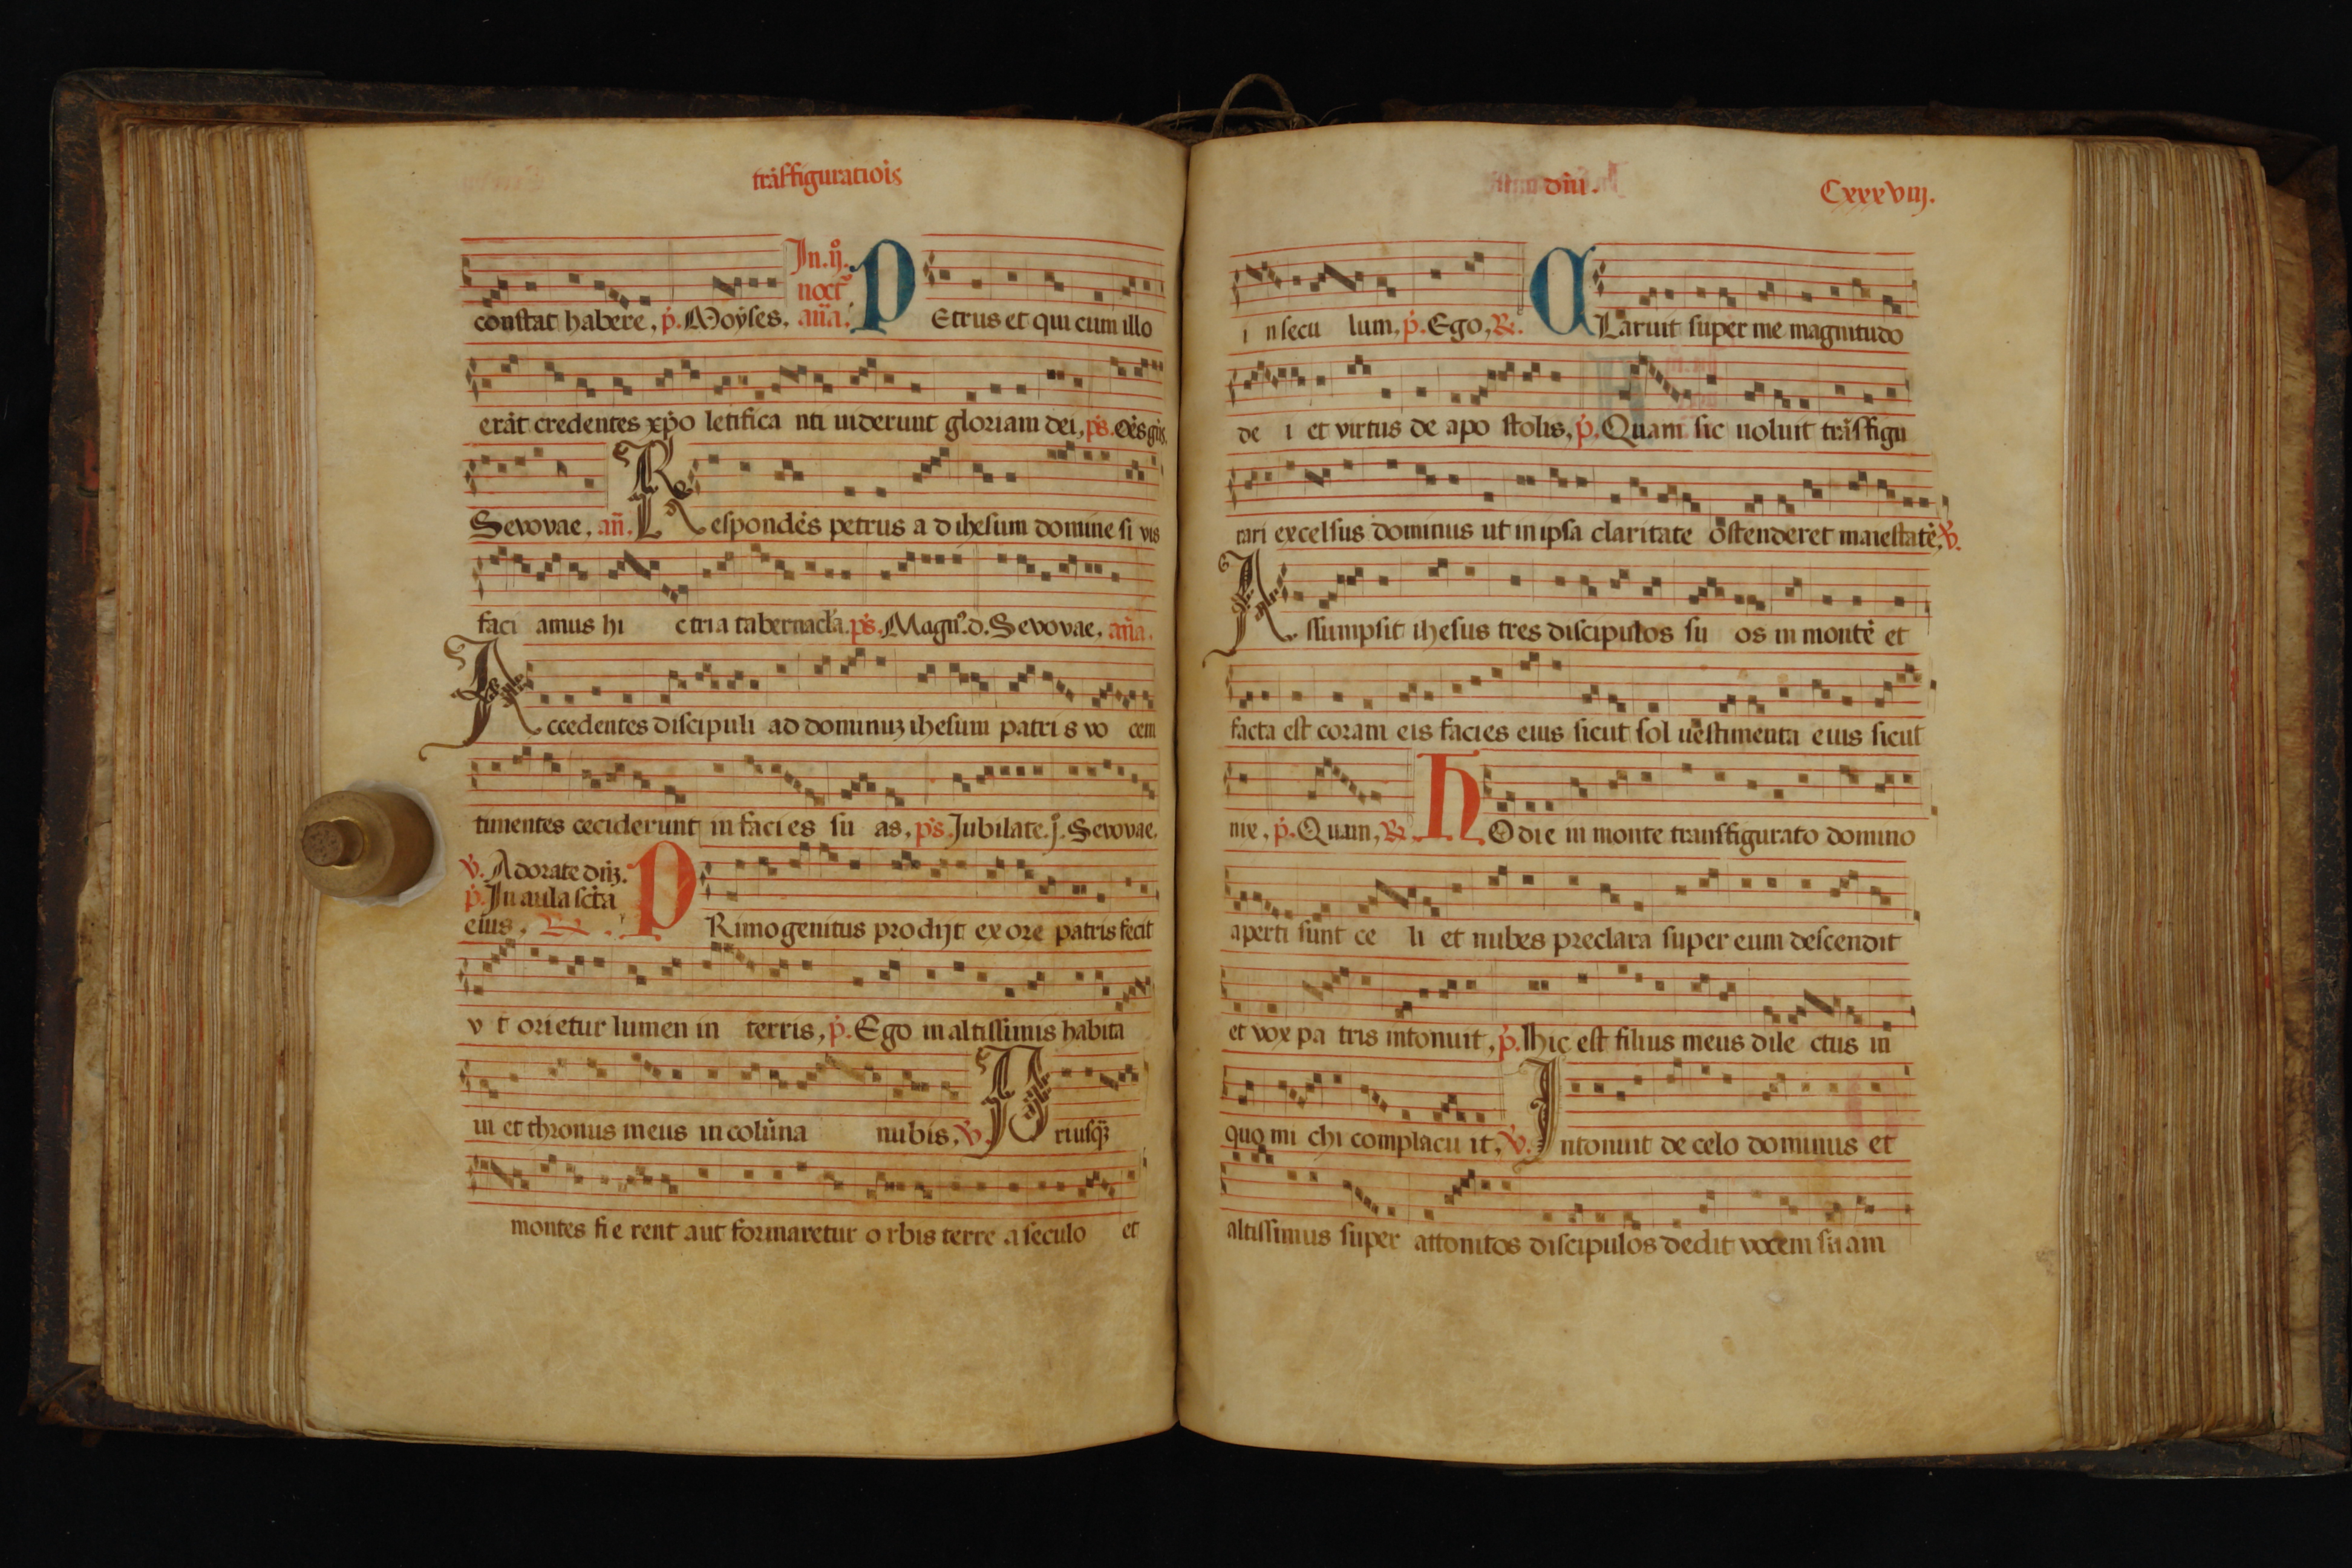 trãsfiguratiõis
In. ij.
noct̃
constat habere, p̃. Moyses. añã. PEtrus et qui cum illo
erãt credentes xp̃o letifica nti uiderunt gloriam dei, ps̃. Oẽs gẽs.
Sevovae, añ. Respondẽs petrus a d ihesum domine si vis
faci amus hi c tria tabernacl̃a. ps̃. Magn̾. d. Sevovae, añã.
Accedentes discipuli ad dominuȝ ihesum patri s vo cem
timentes ceciderunt in faci es su as, ps̃. Jubilate. j̾. Sevovae.
v̾. Adorate dñȝ.
p̃. In aula sc̃ta
eius. R̃. PRimogenitus prodijt ex ore patris fecit
v t orietur lumen in terris, p̃. Ego in altissimis habita
ui et thronus meus in colũna nubis, v̾. Priusq̃
montes fi e rent aut formaretur o rbis terre a seculo et
dñi.
CxxxViij.
i n secu lum, p̃. Ego, R̃. CLaruit super me magnitudo
de i et virtus de apo stolis, p̃. Quam sic uoluit trãsfigu
rari excelsus dominus ut in ipsa claritate ostenderet maiestatẽ, v̾.
Assumpsit ihesus tres discipulos su os in montẽ et
facta est coram eis facies eius sicut sol uestimenta eius sicut
nie, p̃. Quam, R̃. HOdie in monte transfigurato domino
aperti sunt ce li et nubes preclara super eum descendit
et vox pa tris intonuit, p̃. Hic est filius meus dile ctus in
quo mi chi complacu it, v̾. Intonuit de celo dominus et
altissimus super attonitos discipulos dedit vocem su am